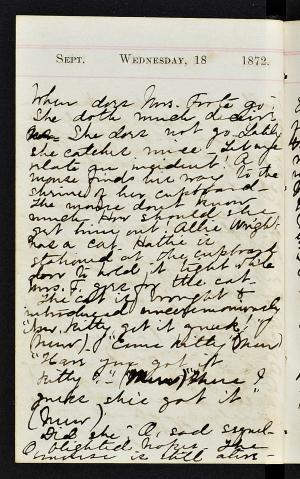 Sept. Wednesday, 18 1872.
When does Mrs. Foote go?
She doth much
She does not go. Lately
she catches mice. Let me
relate an incident! A
mouse finds his way to the
shrine of her cupboard.
The mouse don't know
much. How should she
get him out? Allie Wright
has a cat. Hattie is
stationed at the cupboard
door to hold it tight while
Mrs. F. goes for the cat.
The cat is brought &
introduced unceremoniously
kitty get it quick!"
(Mew) "Come kitty" (Mew)
"Have you got it
kitty?" (Mew) "There I
guess she's got it"
(Mew)
Did she? O, sad
blighted hopes. The
is still alive-